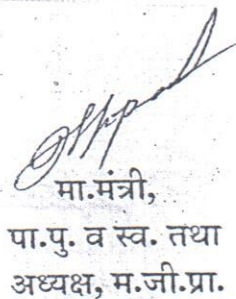 मा.मंत्री,
पा.पु. व स्व. तथा
अध्यक्ष, म.जी.प्रा.